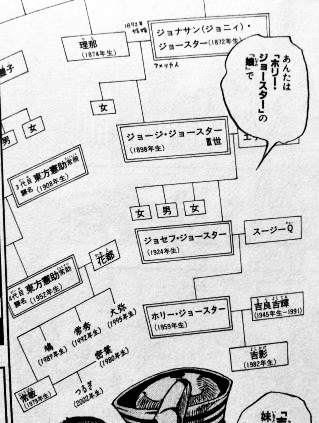 1892年
結婚
理那
(1874年生)
ジョナサン(ジョニィ)・
ジョースター(1872年生)
アメリカ人
あんたは
「ホリー・
ジョースター」の
「娘」で
子
女
女
女
ジョージ・ジョースター
(1898年生) Ⅲ世
3代目 東方憲助
(1908年生)
女
男
女
ジョセフ・ジョースター
(1924年生)
スージーQ
花都
4代目 東方憲助
(1952年生)
ホリー・ジョースター
(1959年生)
吉良吉輝
(1945年生-1991)
吉影
(1982年生)
鳩
常秀
(1992年生)
大弥
(1995年生)
常敏
(1979年生)
つるぎ
(2002年生)
密葉
(1980年生)
妹